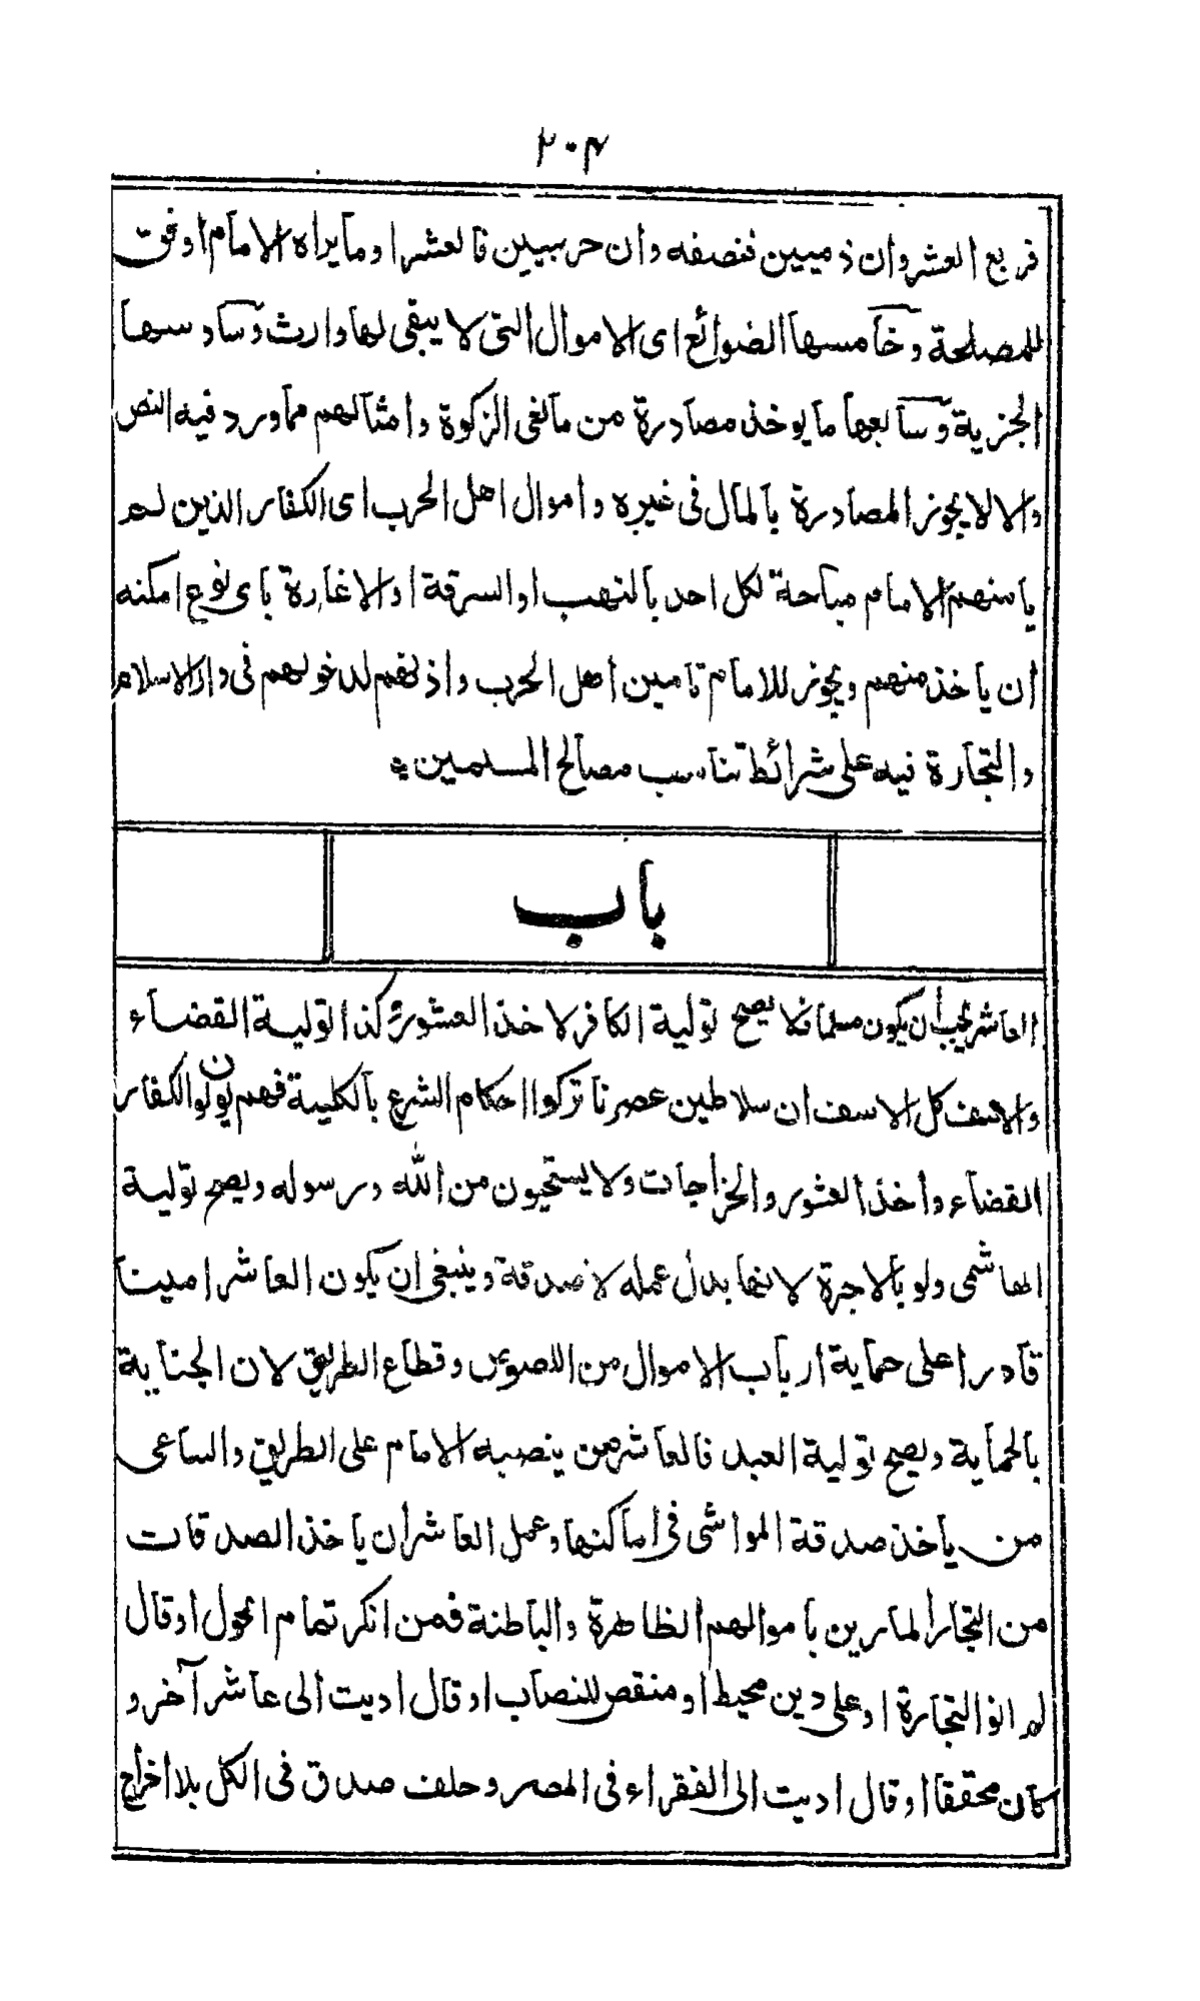 ٢٠٤
فربع العشر وان ذميين فنصفه وان حربيين فالعشر او ما يراه الامام اوفق
للمصلحة وخامسها الضوائع اى الاموال التى لا يبقى لها وارث وسادسها
الجزية وسابعها ما يوخذ مصادرة من مالغى الزكوة وامثالهم مما ورد فيه النص
والا لا يجوز المصادرة بالمال فى غيره واموال اهل الحرب اى الكفار الذين لم
يامنهم الامام مباحة لكل احد بالنهب او السرقة او الاغارة باى نوع امكنه
ان ياخذ منهم ويجوز للامام تامين اهل الحرب واذنهم لدخولهم فى دار الاسلام
والتجارة فيه على شرائط تناسب مصالح المسلمين
باب
العاشر يجب ان يكون مسلما فلا يصح تولية الكافر لاخذ العشور وكذا تولية القضاء
والاسف كل الاسف ان سلاطين عصرنا تركوا احكام الشرع بالكلية فهم يولون الكفار
القضاء واخذ العشور والخراجات ولا يستحيون من الله ورسوله ويصح تولية
الهاشمى ولو بالاجرة لانها بدل عمله لا صدقة وينبغى ان يكون العاشر امينا
قادرا على حماية ارباب الاموال من اللصوص وقطاع الطريق لان الجناية
بالحماية ويصح تولية العبد فالعاشر من ينصبه الامام على الطريق والساعى
من ياخذ صدقة المواشى فى اماكنها وعمل العاشر ان ياخذ الصدقات
من التجار المارين باموالهم الظاهرة والباطنة فمن انكر تمام الحول او قال
لم انو التجارة او على دين محيط او منقص للنصاب او قال اديت الى عاشر آخر و
كان محققا او قال اديت الى الفقراء فى المصر وحلف صدق فى الكل بلا اخراج